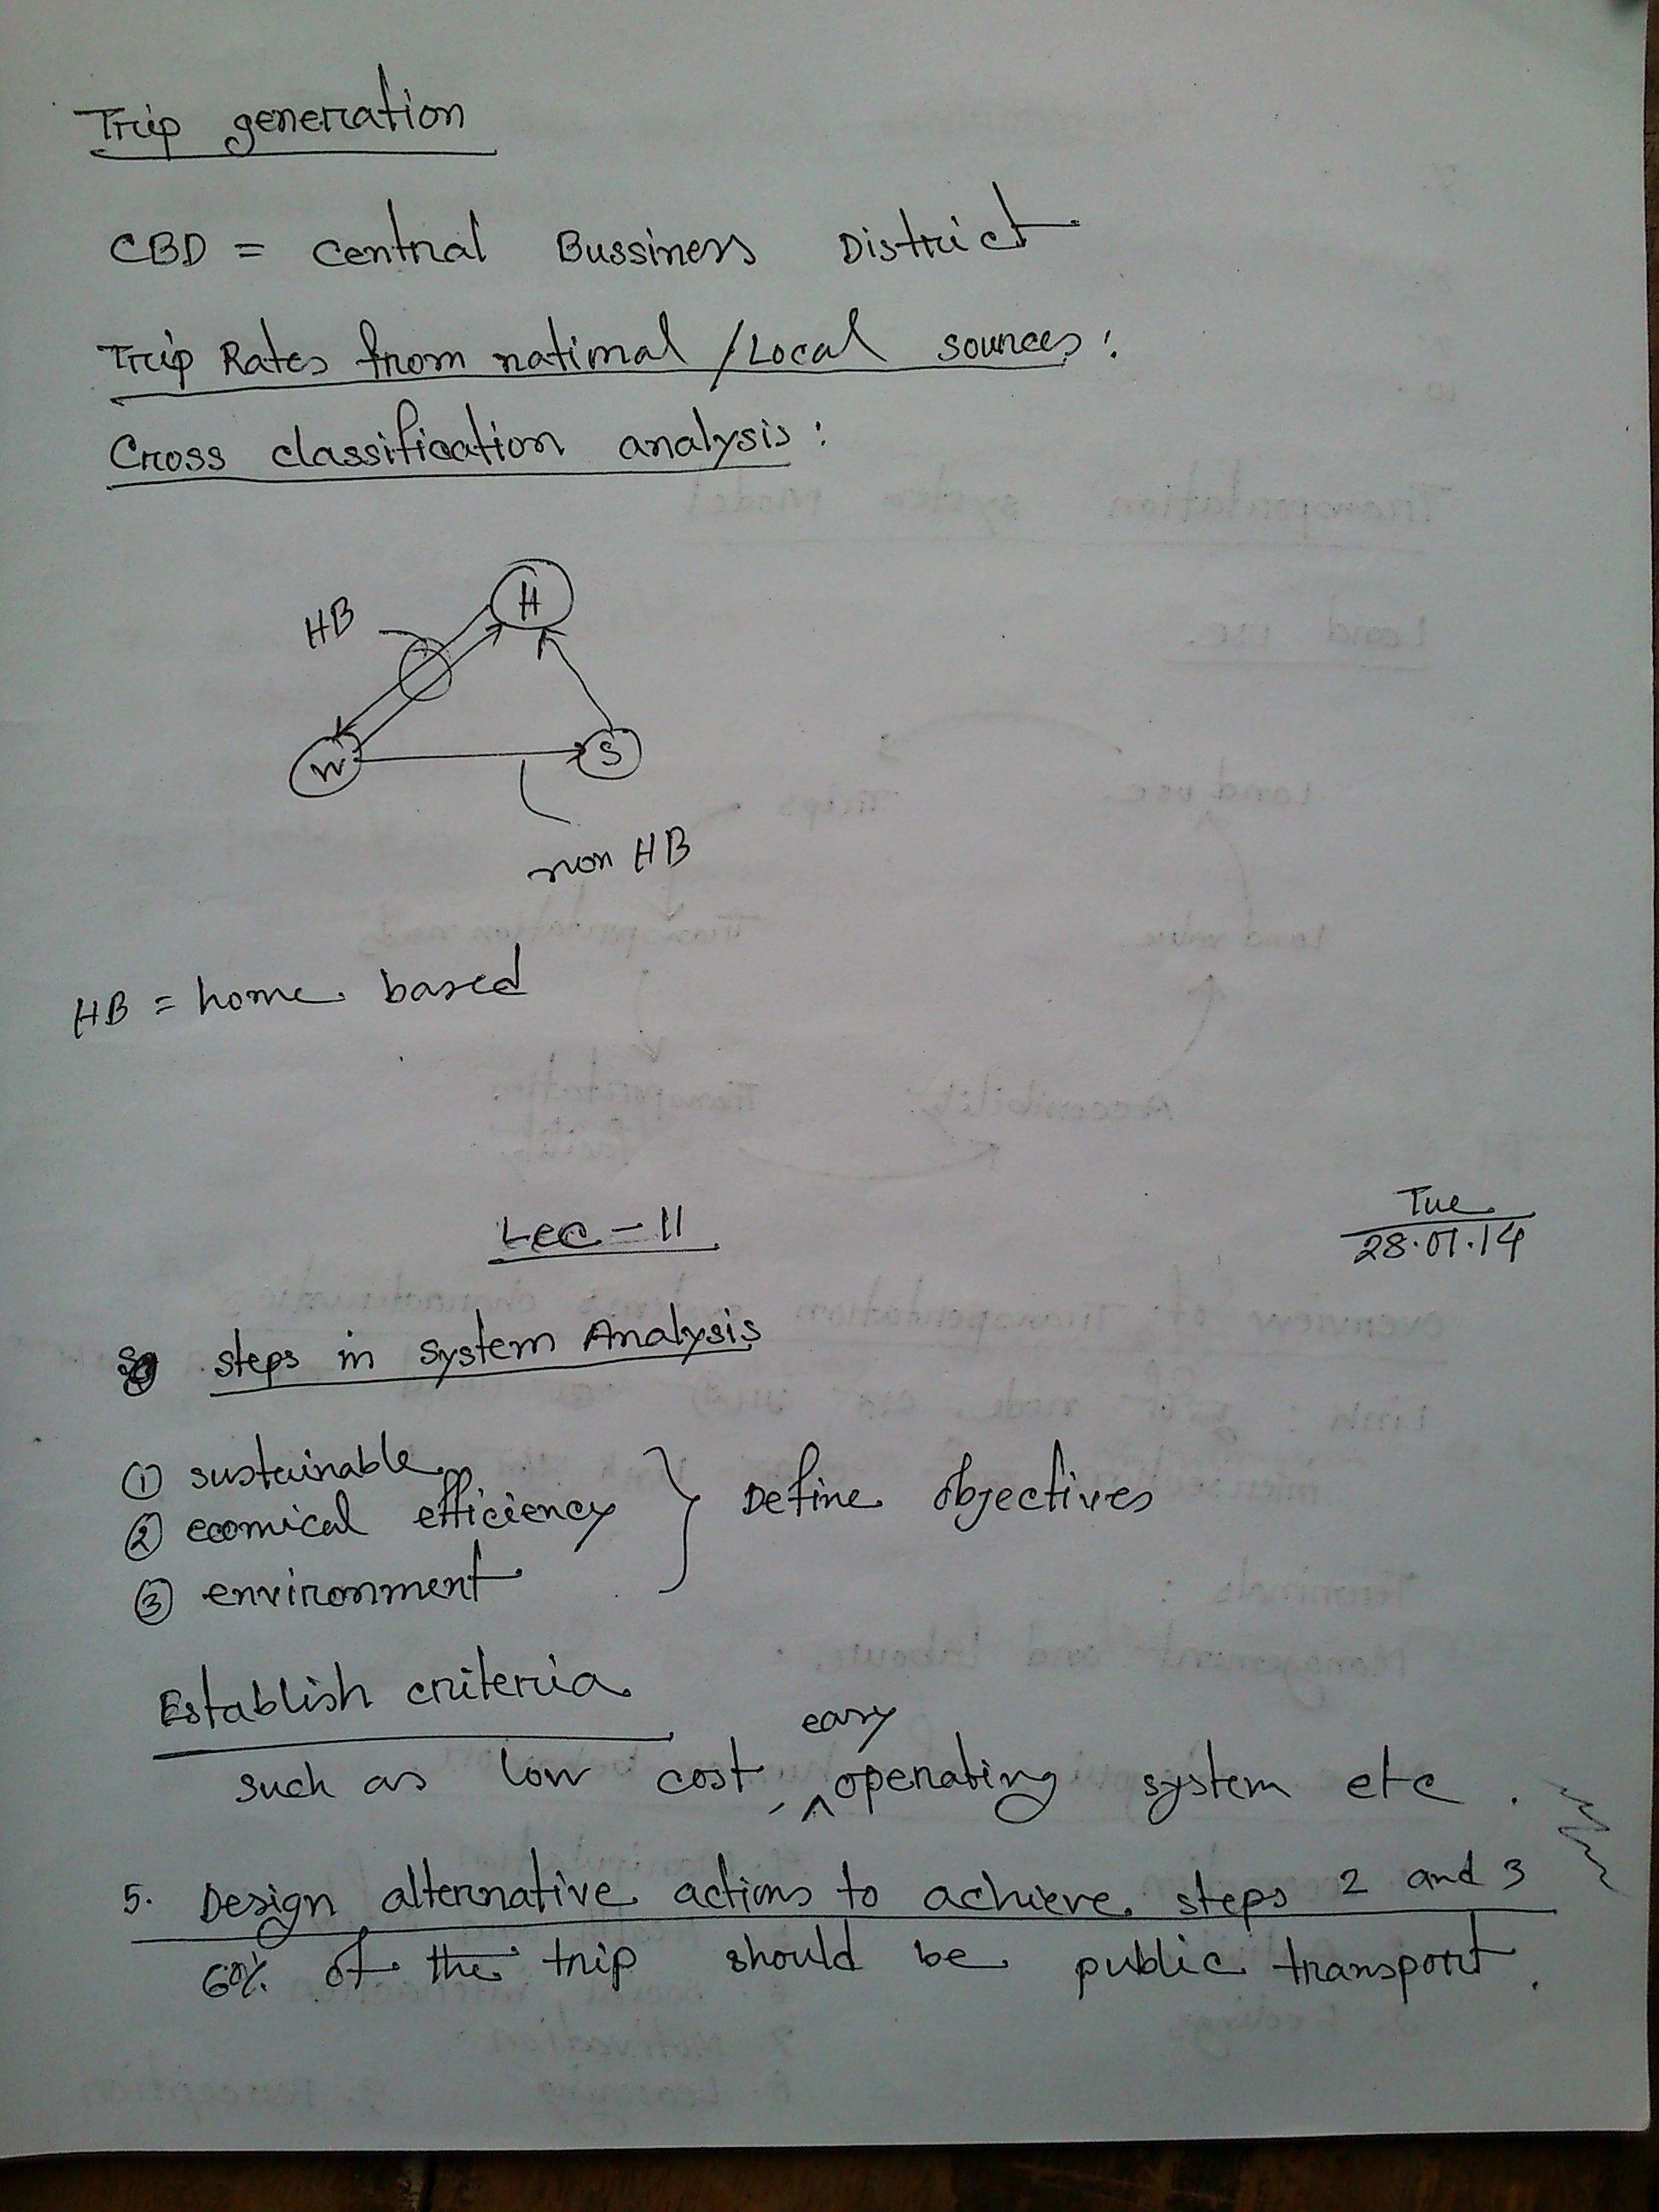 Trip generation
CBD = central Bussiness District
Trip Rates from national / Local sources:
Cross classification analysis:
H
HB
W
S
non HB
HB = home based
Lec - 11
Tue
28.01.14
steps in system Analysis
① sustainable
② ecomical efficiency
③ environment
} Define objectives
Establish criteria
easy
such as low cost, ^ operating system etc.
5. Design alternative actions to achieve steps 2 and 3
60% of the trip should be public transport.